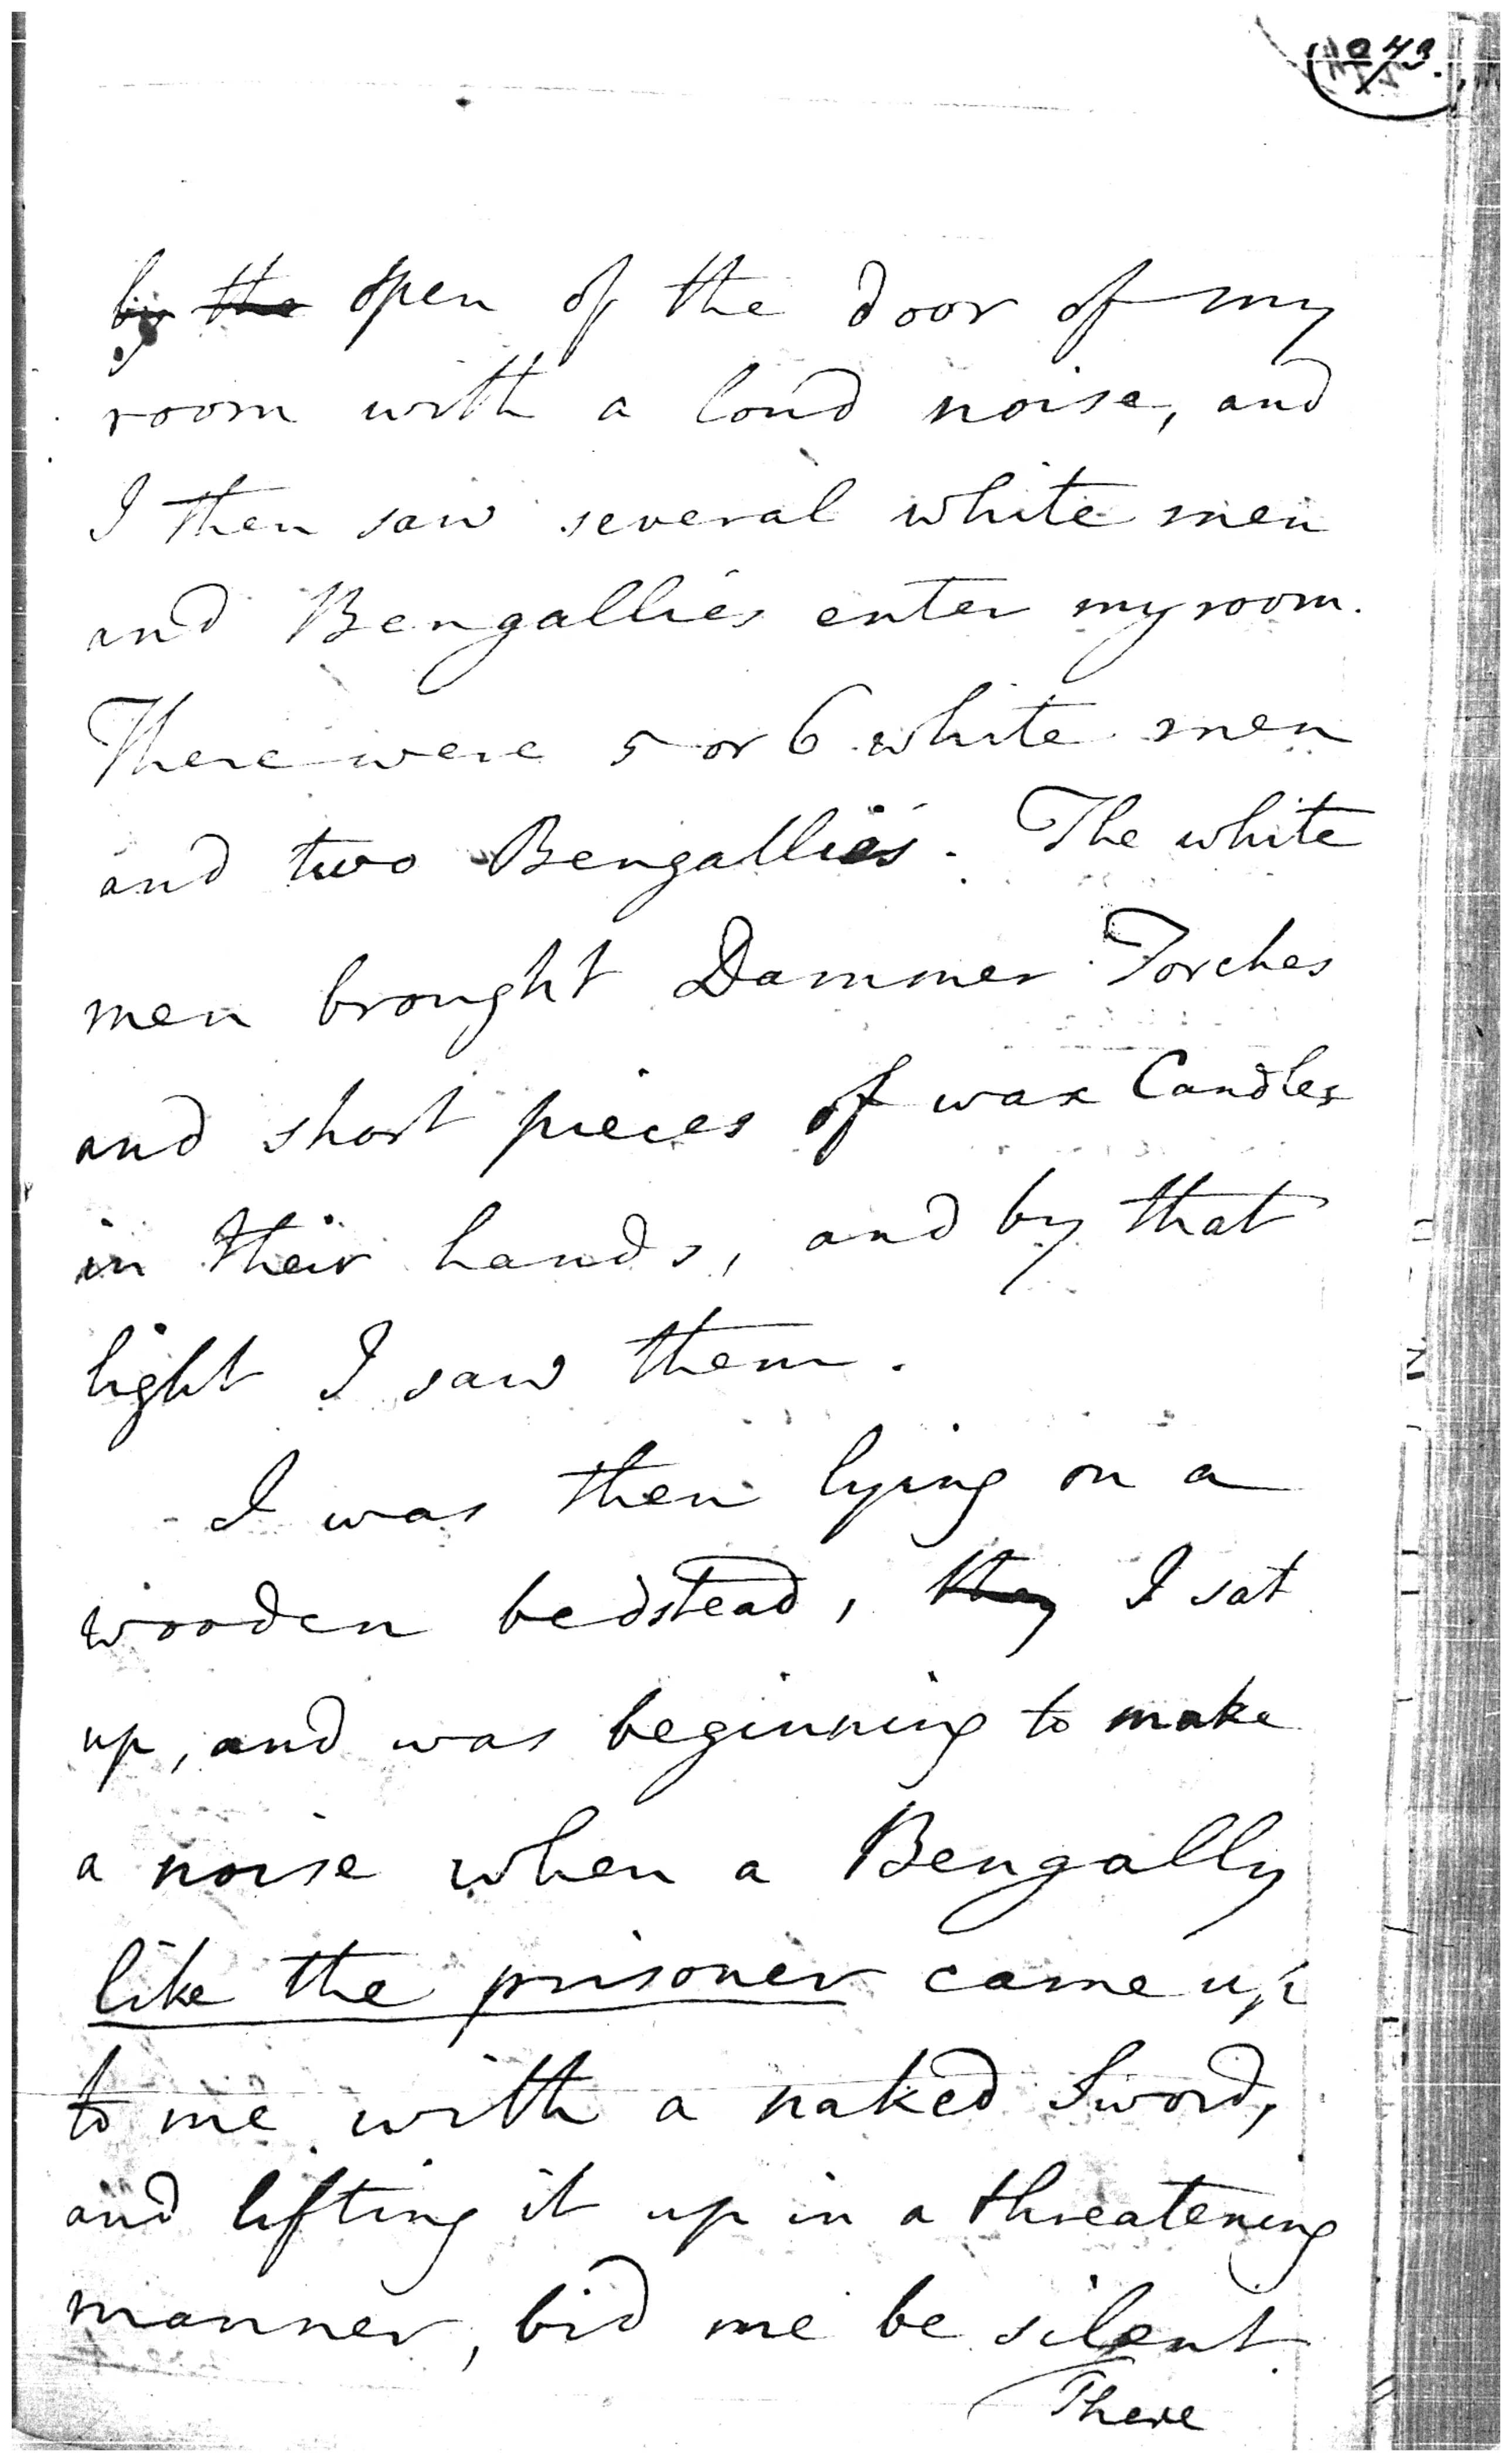 by the open of the door of my
room with a loud noise, and
I then saw several white men
and Bengallies enter my room.
There were 5 or 6 white men
and two Bengallies. The white
men brought Dammer Torches
and short pieces of wax Candles
in their hands, and by that
light I saw them.
I was then lying on a
wooden bedstead, they I sat
up, and was beginning to make
a noise when a Bengally
like the prisoner came up
to me with a naked Sword,
and lifting it up in a threatening
manner, bid me be silent
There